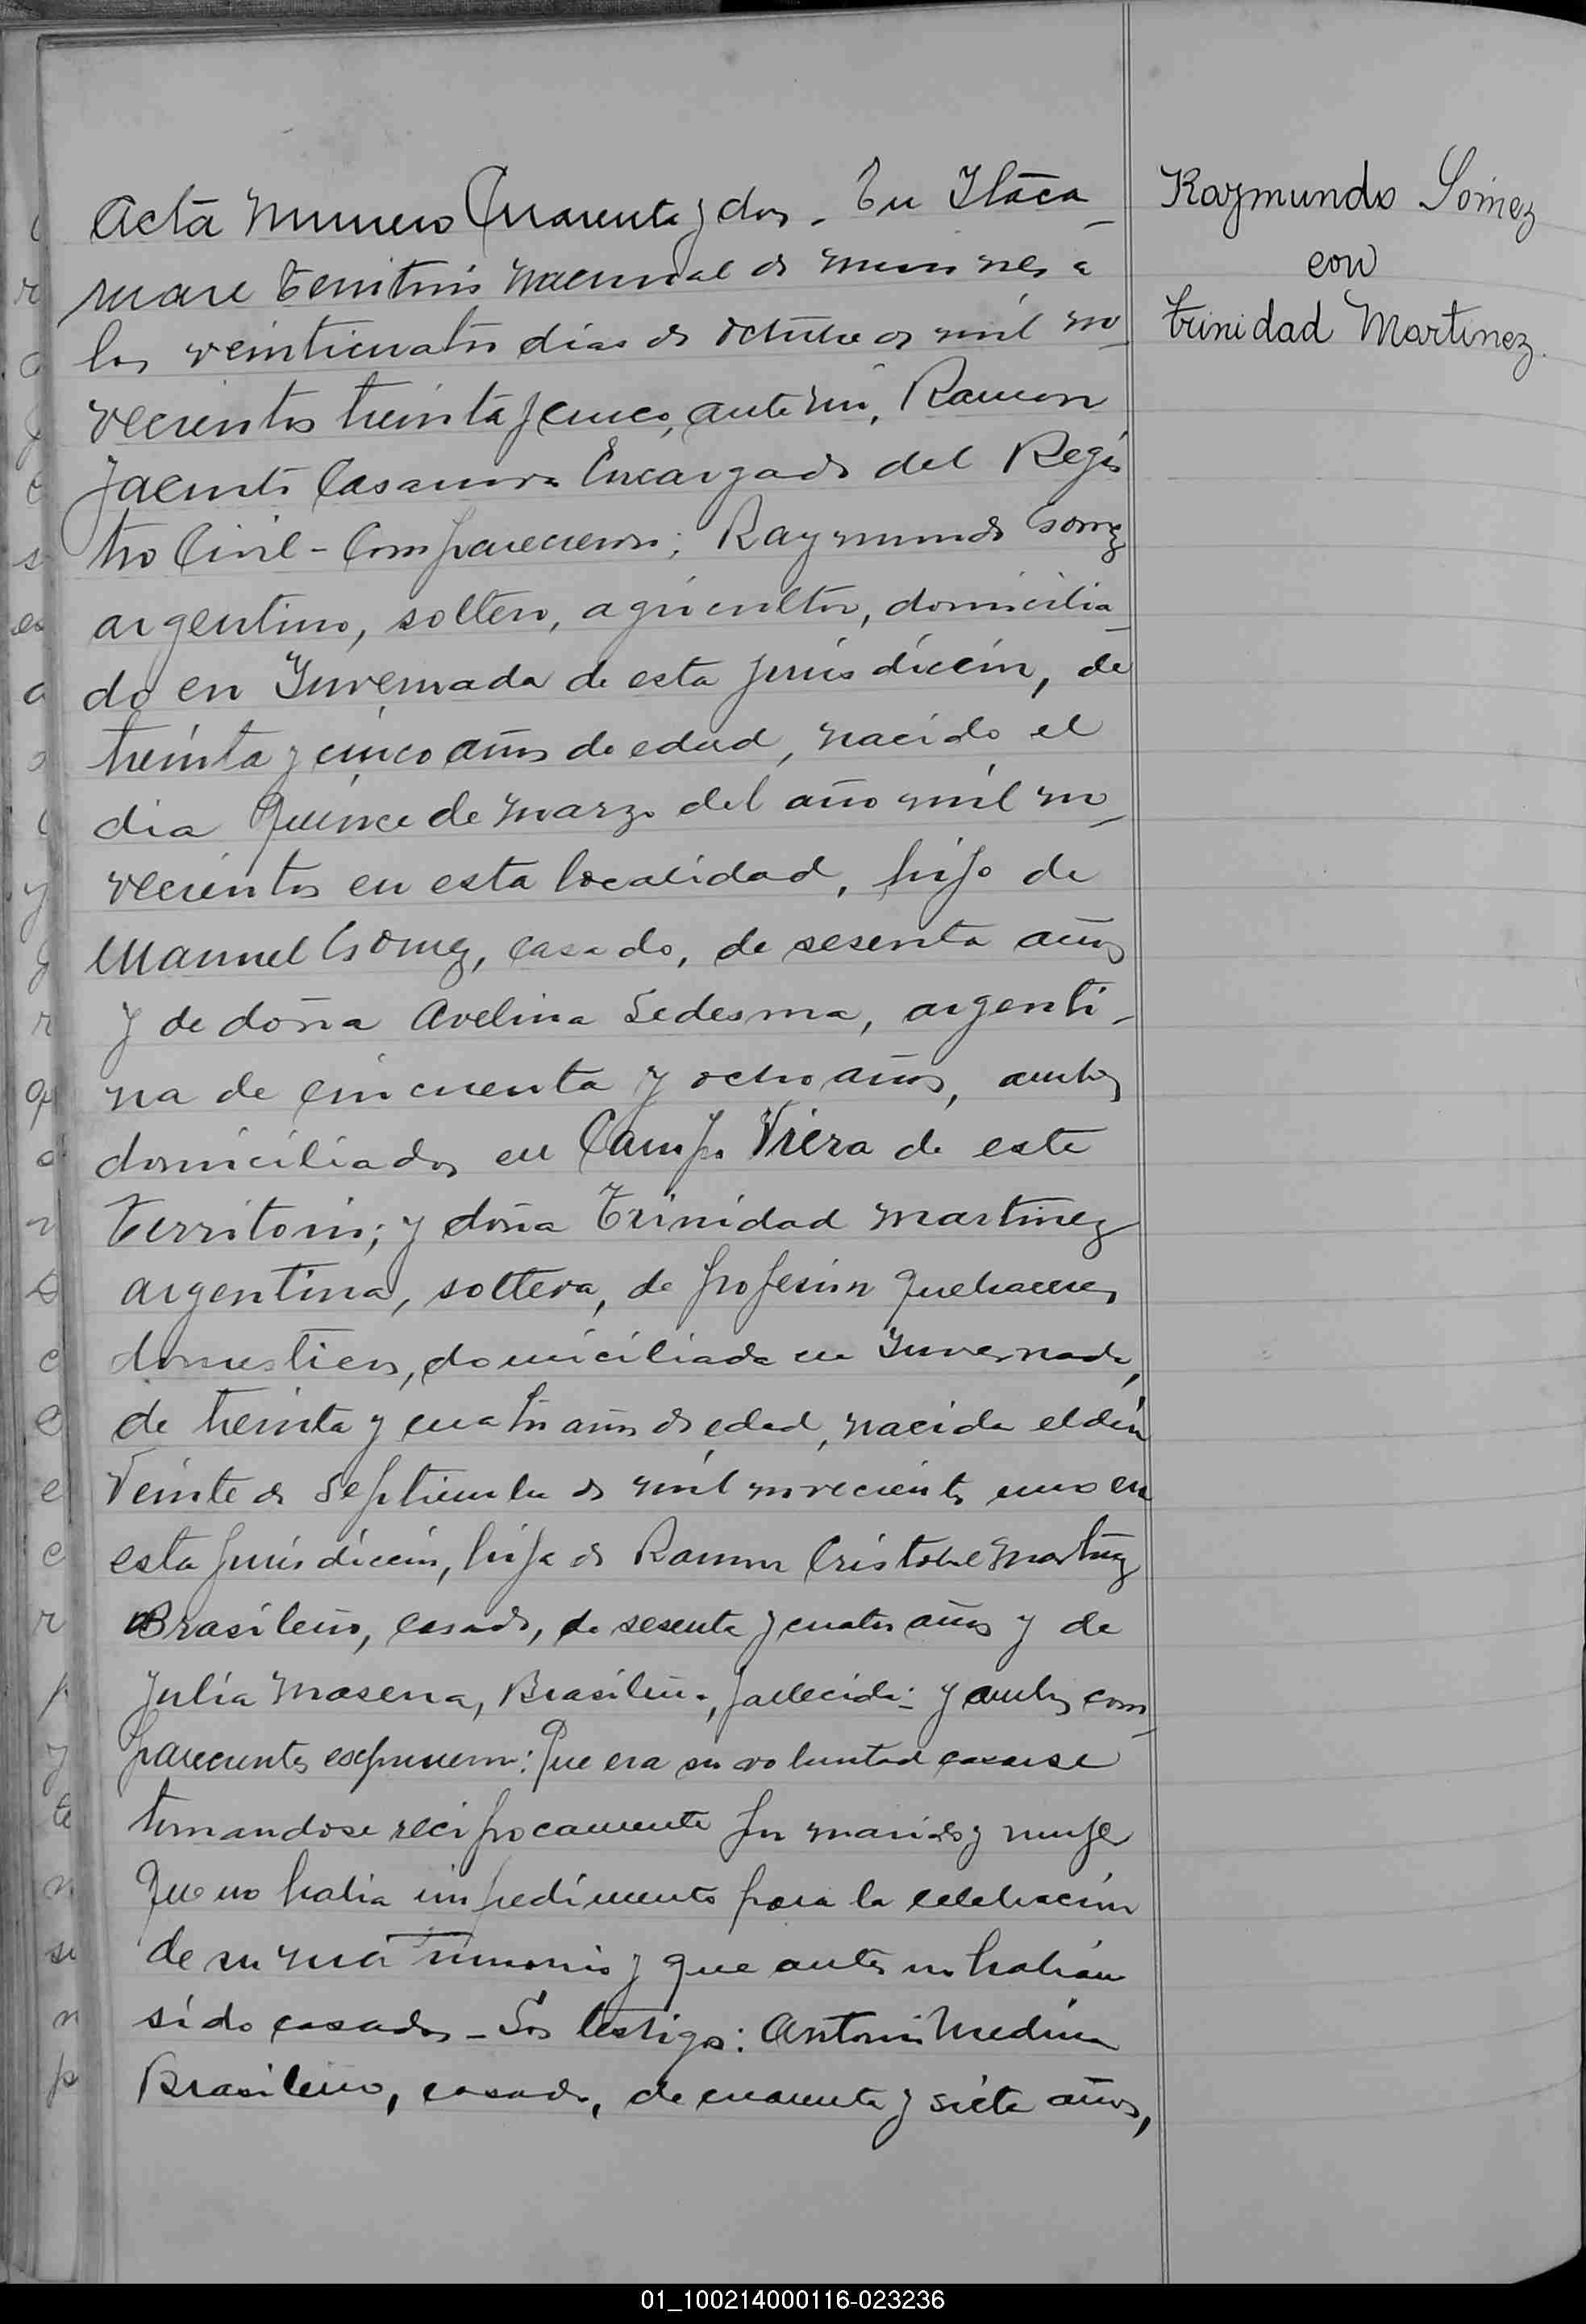 Acta Numero Cuarenta y dos - En Itaca-
ruare Territorio Nacional de Misiones a
los veinticuatro dias de octubre de mil no-
vecientos treinta y cinco, ante mi, Ramon
Jacinto Casanova Encargado del Regis
tro Civil - Comparecieron: Raymundo Gomez
argentino, soltero, agricultor, domicilia-
do en Invernada de esta jurisdicción, de
treinta y cinco años de edad, nacido el
dia quince de Marzo del año mil no-
vecientos en esta localidad, hijo de
Manuel Gomez, casado, de sesenta años
y de doña Avelina Ledesma, argenti-
na de cincuenta y ocho años, ambos
domiciliados en Campo Viera de este
Territorio; y doña Trinidad Martinez
argentina, soltera, de profesion quehaceres
domesticos, domiciliada en Invernada,
de treinta y cuatro años de edad, nacida el dia
Veinte de Septiembre de mil novecientos uno en
esta jurisdicción, hija de Ramon Cristobal Martinez
Brasileño, casado, de sesenta y cuatro años y de
Julia Masena, Brasileña, fallecida: y ambos com-
parecientes expusieron: Que era su voluntad casarse
tomandose reciprocamente por marido y mujer
Que no habia impedimento para la celebración
de su matrimonio y que antes no habian
sido casados - Los testigos: Antonio Medina
Brasileño, casado, de cuarenta y siete años,
Raymundo Gómez
con
Trinidad Martinez.
01_100214000116-023236